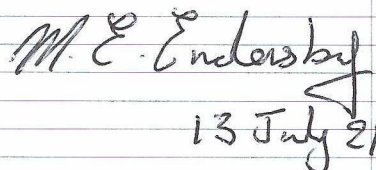 M. E. Endersby
13 July 21